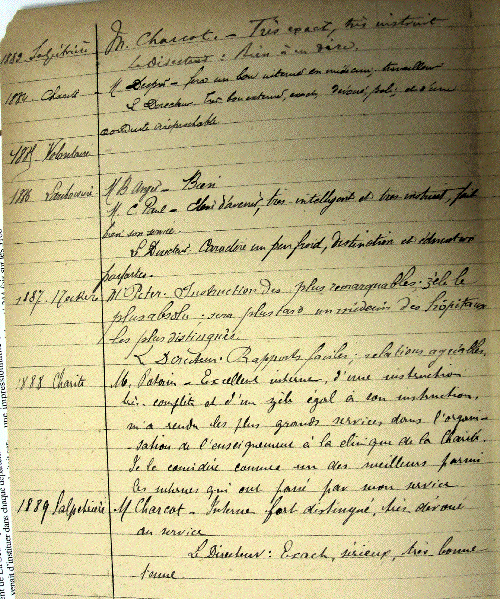 1883 Salpêtrière M. Charcot. - Très exact, très instruit
Le Directeur : Rien à en dire.
1884 Charité M. Després - fera un bon interne en médecine, travailleur
Le Directeur Très bon externe, exact, dévoué, poli, et d'une
conduite irréprochable
1885 Volontaire
1886 Lariboisière M. B. Anger - Bien
M. C. Paul - élève d'avenir, très intelligent et très instruit, fait
bien son service
Le Directeur Caractère un peu froid, distinction et éducation
parfaites.
1887 Necker M. Peter. Instruction des plus remarquables : zèle le
plus absolu : sera plus tard un médecin des hôpitaux
les plus distingués
Le Directeur : Rapports faciles, relations agréables.
1888 Charité M. Potain - Excellent interne, d'une instruction
très complète et d'un zèle égal à son instruction,
m'a rendu les plus grands services dans l'organi-
sation de l'enseignement à la clinique de la Charité.
Je le considère comme un des meilleurs parmi
les internes qui ont passé par mon service
1889 Salpêtrière M Charcot - Interne fort distingué, très dévoué
au service
Le Directeur : Exact, sérieux, très bonne
tenue